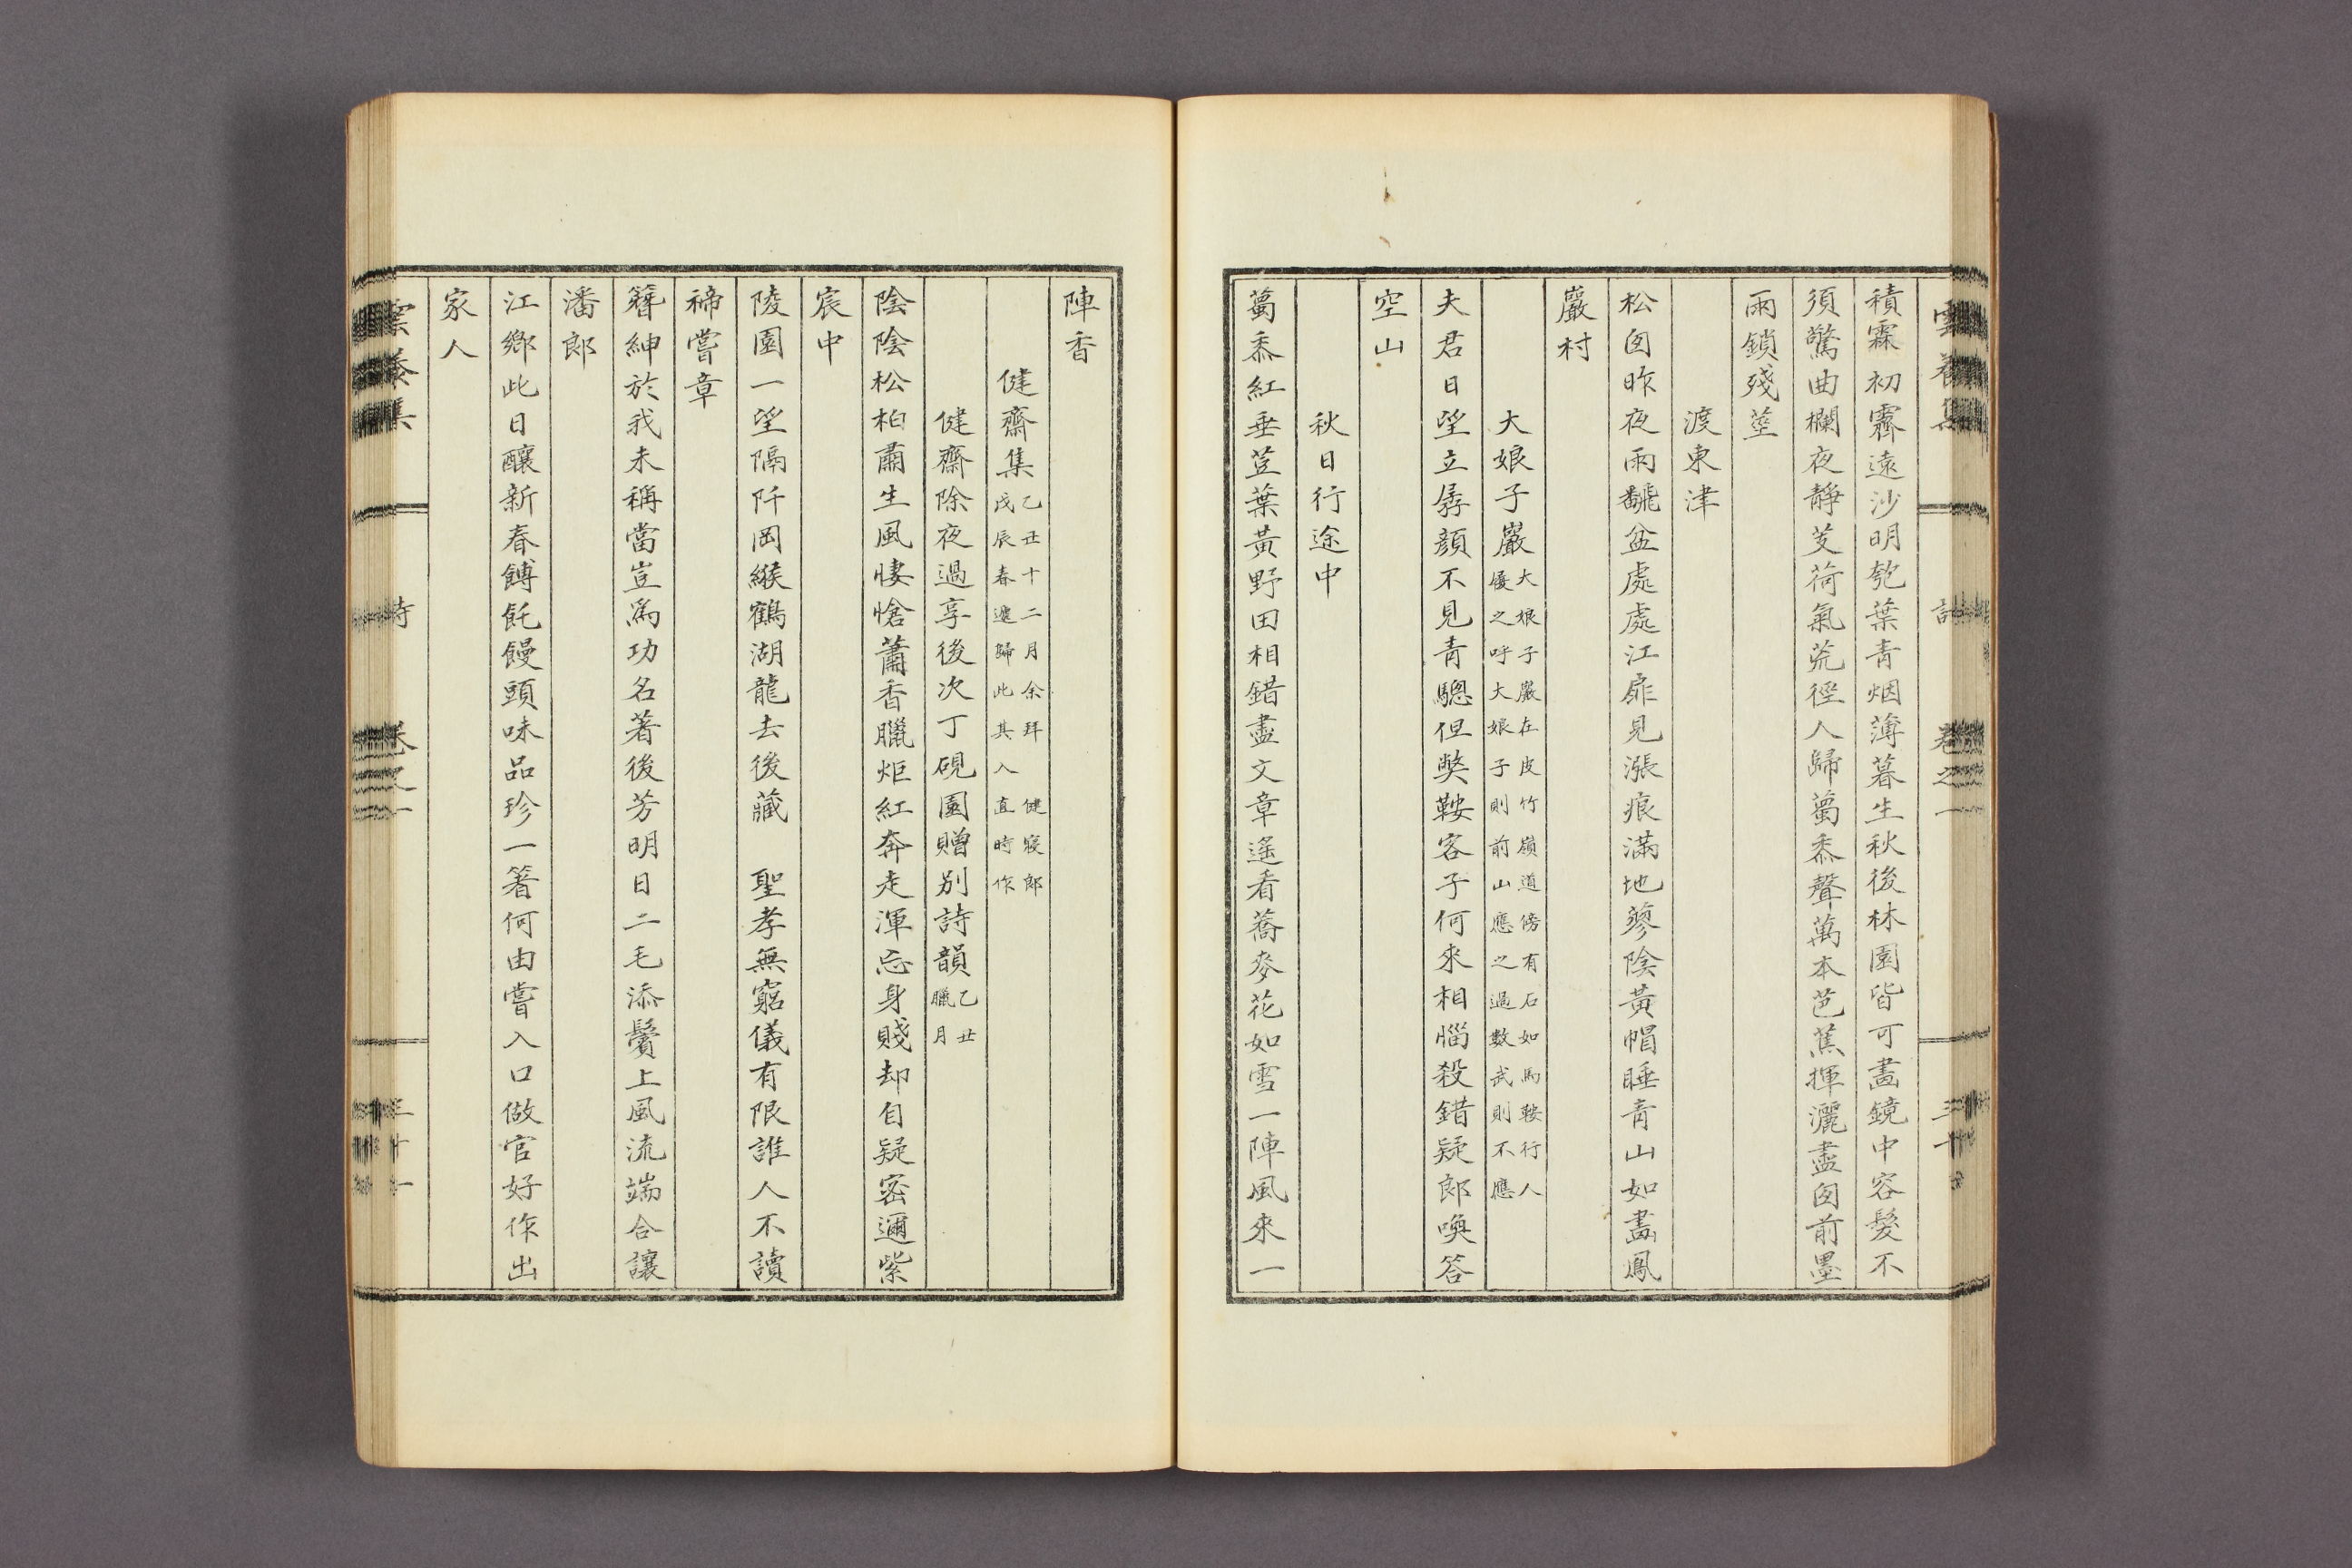 雲養集 詩 卷之一 三十
積霖初霽遠沙明匏葉青烟薄暮生秋後林園皆可畵鏡中容髮不
須驚曲欄夜靜芰荷氣荒徑人歸蜀黍聲萬本芭蕉揮灑盡囱前墨
雨鎖殘莖
渡東津
松囱昨夜雨飜盆處處江扉見漲痕滿地蓼陰黃帽睡青山如畵鳳
巖村
大娘子巖大娘子巖在皮竹嶺道傍有石如馬鞍行人
優之呼大娘子則前山應之過數武則不應
夫君日望立孱顔不見青驄但獘鞍客子何來相惱殺錯疑郎喚答
空山
秋日行途中
蜀黍紅垂荳葉黃野田相錯盡文章遙看蕎麥花如雪一陣風來一
陣香
健齋集乙丑十二月余拜 健寢郎
戊辰春遞歸此其入直時作
健齋除夜過享後次丁硯園贈別詩韻乙丑
臘月
陰陰松柏肅生風悽愴蕭香臘炬紅奔走渾忘身賤却自疑密邇紫
宸中
陵園一望隔阡岡緱鶴湖龍去後藏 聖孝無窮儀有限誰人不讀
禘嘗章
簪紳於我未稱當豈爲功名著後芳明日二毛添鬢上風流端合讓
潘郎
江鄉此日釀新春餺飥饅頭味品珍一箸何由嘗入口做官好作出
家人
雲養集 詩 卷之一 三十一